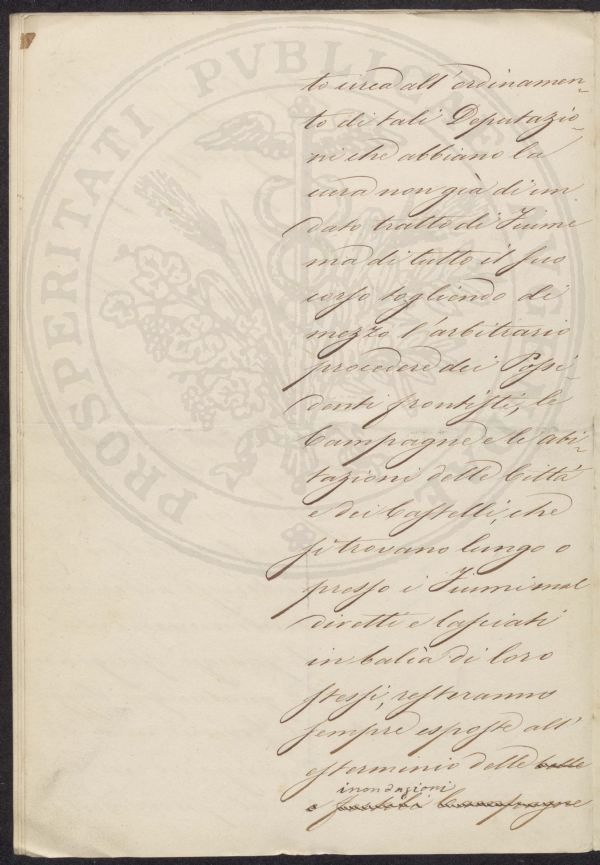 to circa all'ordinamen-
to di tali Deputazio-
ni che abbiano la
cura non già di un
dato tratto di Fiume
ma di tutto il suo
corso togliendo di
mezzo l'arbitrario
procedere dei Possi-
denti frontisti, le
Campagne e le abi-
tazioni delle Città
e dei Castelli, che
si trovano lungo o
presso i Fiumi mal
diretti e lasciati
in balìa di loro
stessi, resteranno
sempre esposte all'
esterminio delle belle
inondazioni
e fertili Campagne
PROSPERITATI PVBLICAE AVGENDAE